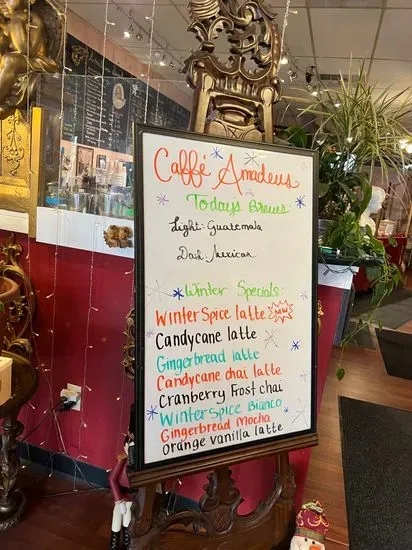 Caffé Amadeus
Todays Brews
Light: Guatemala
Dark: Mexican
Winter Specials:
Winter Spice latte NEW
Candycane latte
Gingerbread latte
Candycane chai latte
Cranberry Frost chai
Winter Spice Bianco
Gingerbread Mocha
orange vanilla latte